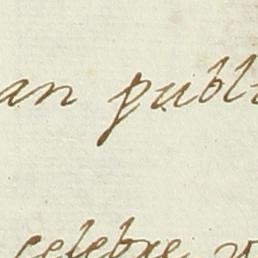 an publi
celebre v